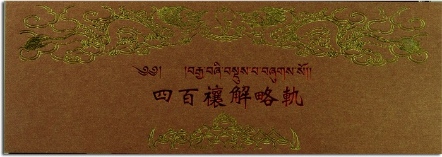 ༄༅། །བརྒྱ་བཞི་བསྡུས་པ་བཞུགས་སོ།།
四百禳解略軌